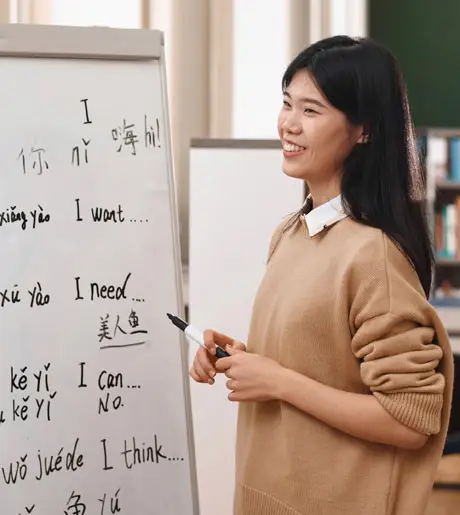 I
你 nǐ 嗨 hi!
xiǎng yào I want ....
xū yào I need ....
美人鱼
kě yǐ I can ...
kě yǐ No.
wǒ juéde I think ....
鱼 yú